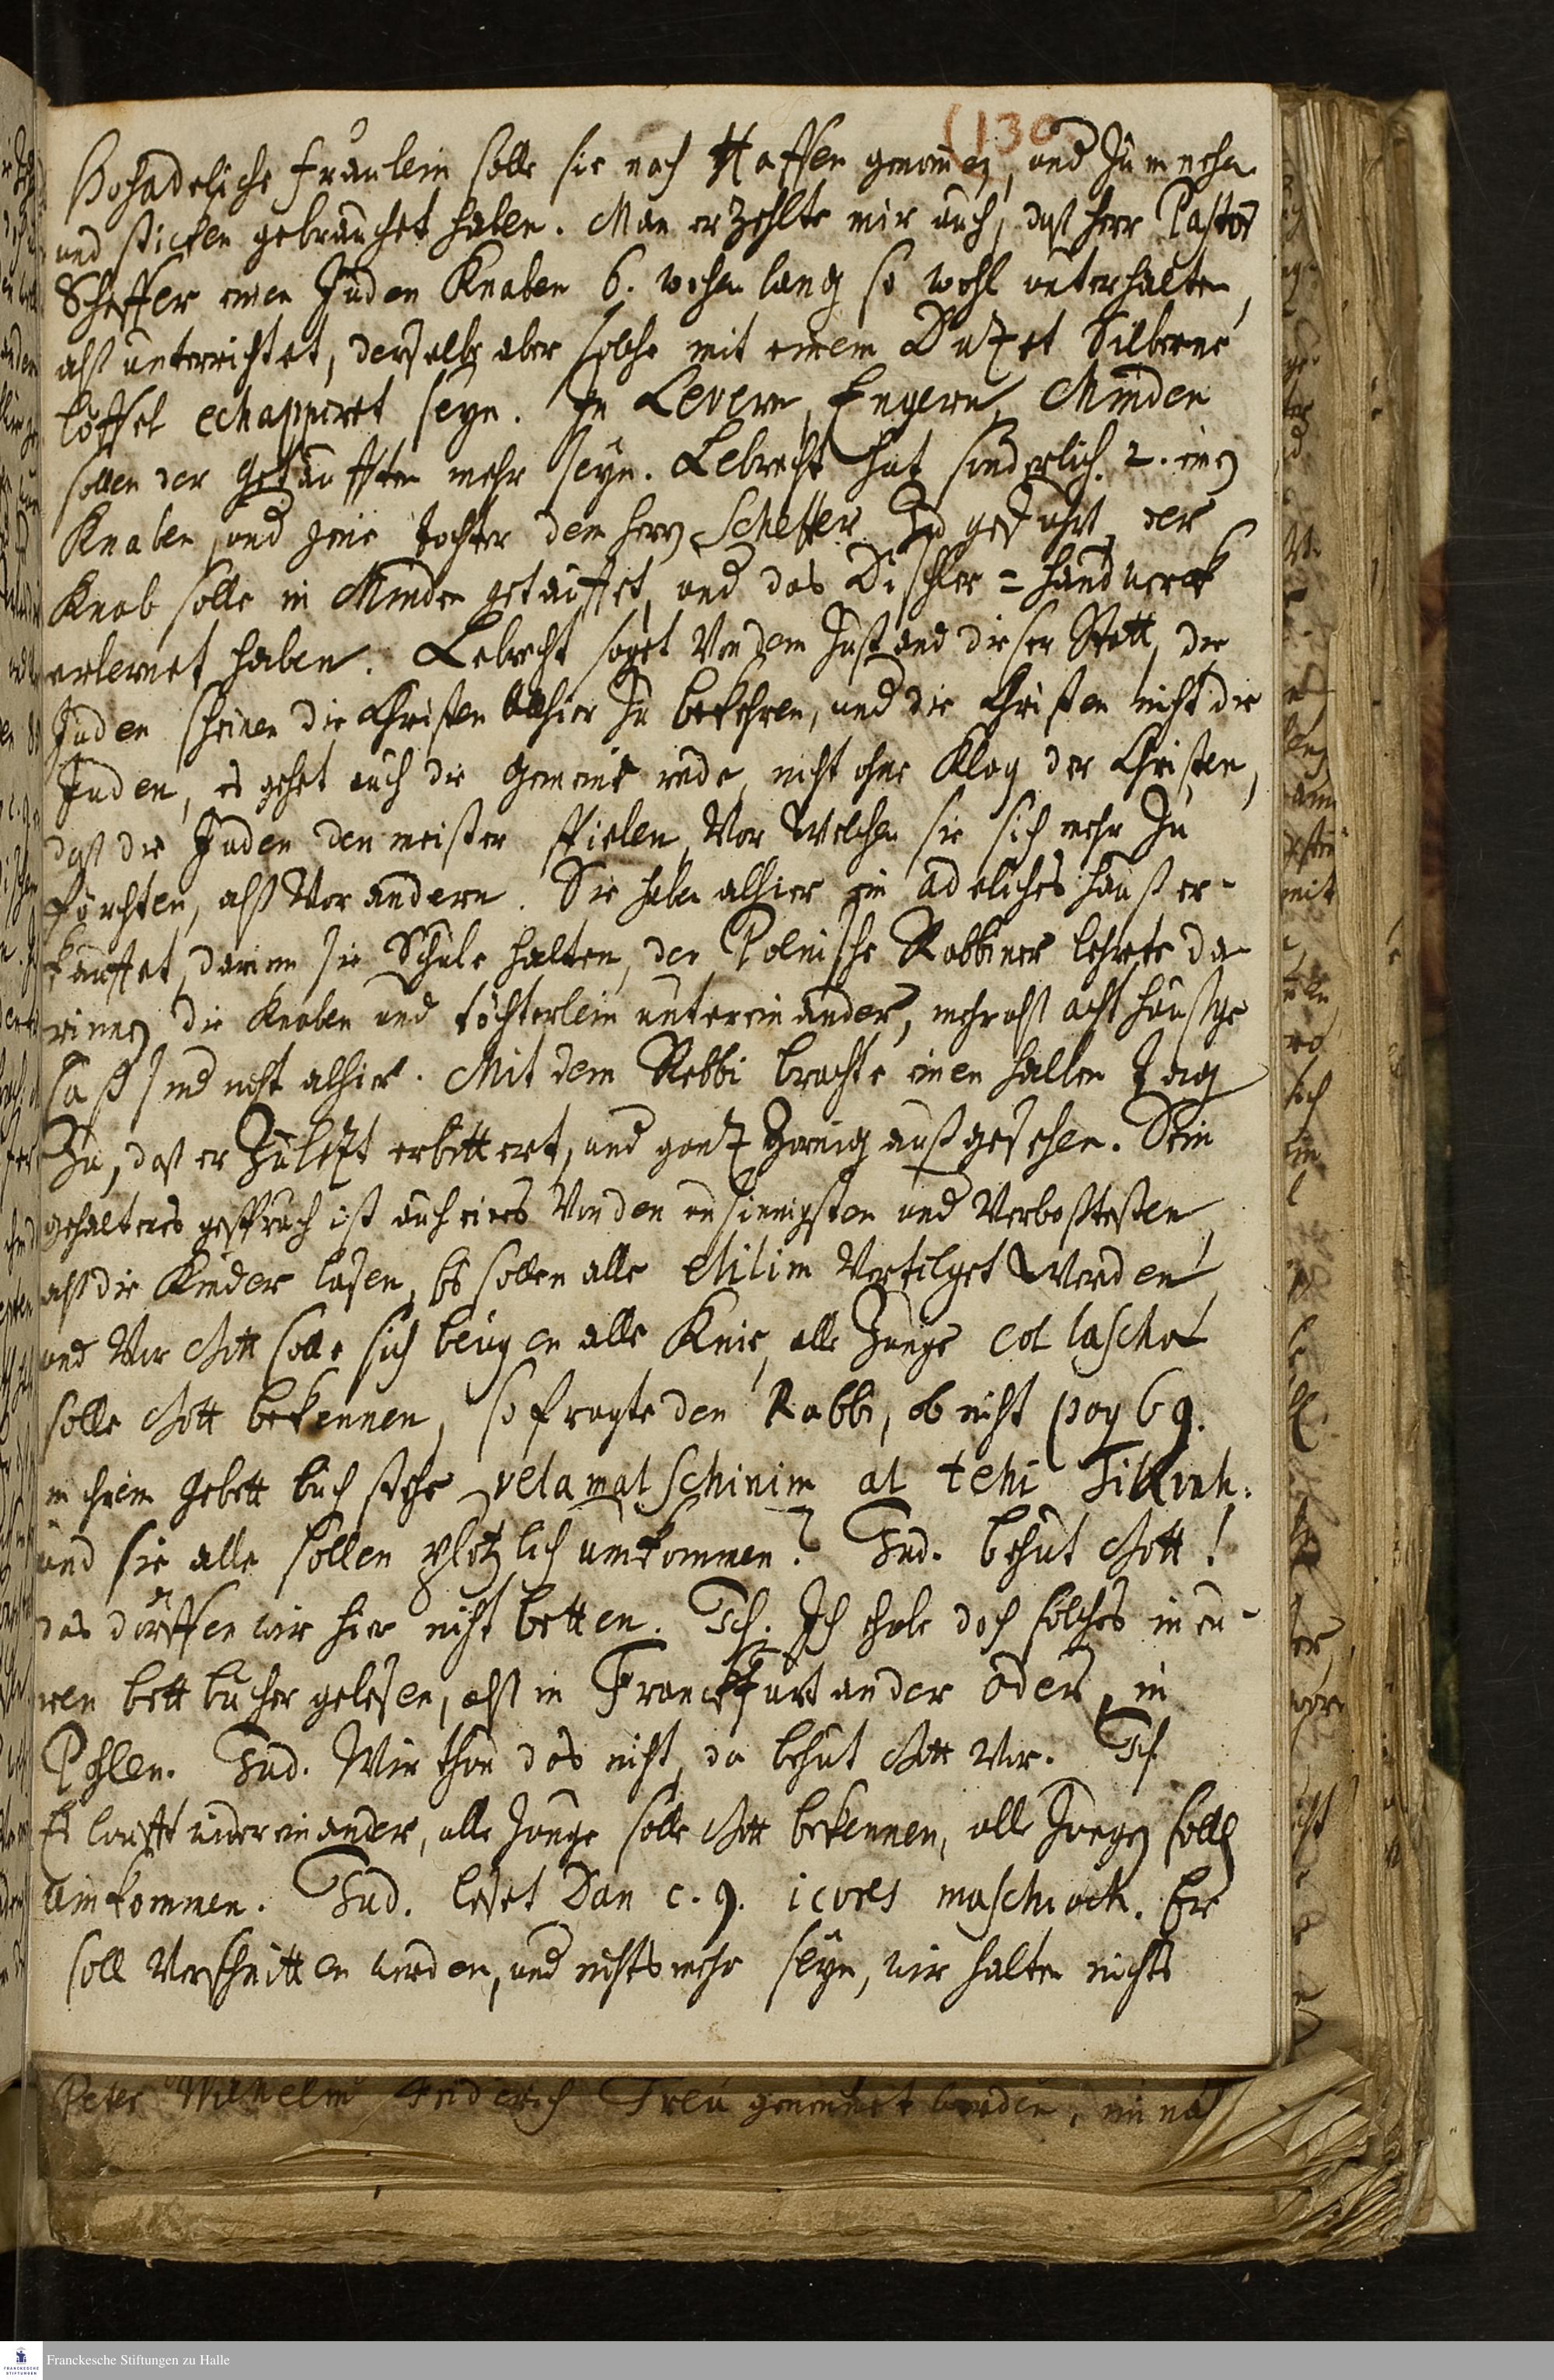 (130
Hohadeliche fraulein solle sie nach Hassen genommen, und zu m nehen
und sticken gebrauchet haben. Man erzehlte mir auch, daß herr Pastor
Scheffer einen Juden Knaben 6. wochen lang so wohl unterhalten,
alß unterrichtet, derselbe aber solche mit einem Dutzet Silberne
löffel echapperet seyn. In Levern, Engern, Minden
sollen der getaufften mehr seyn. Lebrecht hat sonderlich 2. einen
Knaben, und eine tochter dem herrn Scheffer zu geführt, der
Knab solle in Minden getauffet, und das Dischler=handwerck
erlernet haben. Lebrecht saget Von dem Zustand dieser Statt, die
Juden scheinen die Christen allhier zu bekehren, und die Christen nicht die
Juden, es gehet auch die gemeine rede, nicht ohne Klag der Christen,
daß die Juden den meister spielen, Vor Welchen sie sich mehr zu
förchten, alß Vor andern. Sie haben alhier ein adeliches hauß er-
kauffet, darinn sie Schule halten, der Polnische Rabbiner lehrete da
rinnen die Knaben und töchterlein untereinander, mehr alß acht haußge
säß sind nicht alhier. Mit dem Rebbi brachte einen halben Tag
zu, daß er zuletzt erbittert, und gantz zornig außgesehen. Sein
gehaltenes gespräch ist auch eines Von den unsinnigsten und Verboßtesten,
alß die Kinder lasen, Es sollen alle Elilim Vertilget Werden,
und Vor Gott solle sich beugen alle Knie, alle Zunge col laschon
solle Gott bekennen, so fragte den Rabbi, ob nicht pag 69.
in ihrem Gebett buch stehe velamalschinim al tehi Tikvah.
und sie alle sollen plötzlich umkommen? Jud. behüt Gott!
das dörffen wir hier nicht betten. Ich. Ich habe doch solches in eu-
ren bett bücher gelesen, alß in Franckfurt an der Oder, in
Pohlen. Jud. Wir thun das nicht, da behüt Gott Vor. Ich
Es laufft wider einander, alle Zunge solle Gott bekennen, alle Zungen sollen
umkommen. Jud. leset Dan c. 9. icores maschiach. Er
soll Verschnitten werden, und nichts mehr seyn, wir halten nichts
Peter Wilhelm Friderich Treu genennet worden, im
Franckesche Stiftungen zu Halle